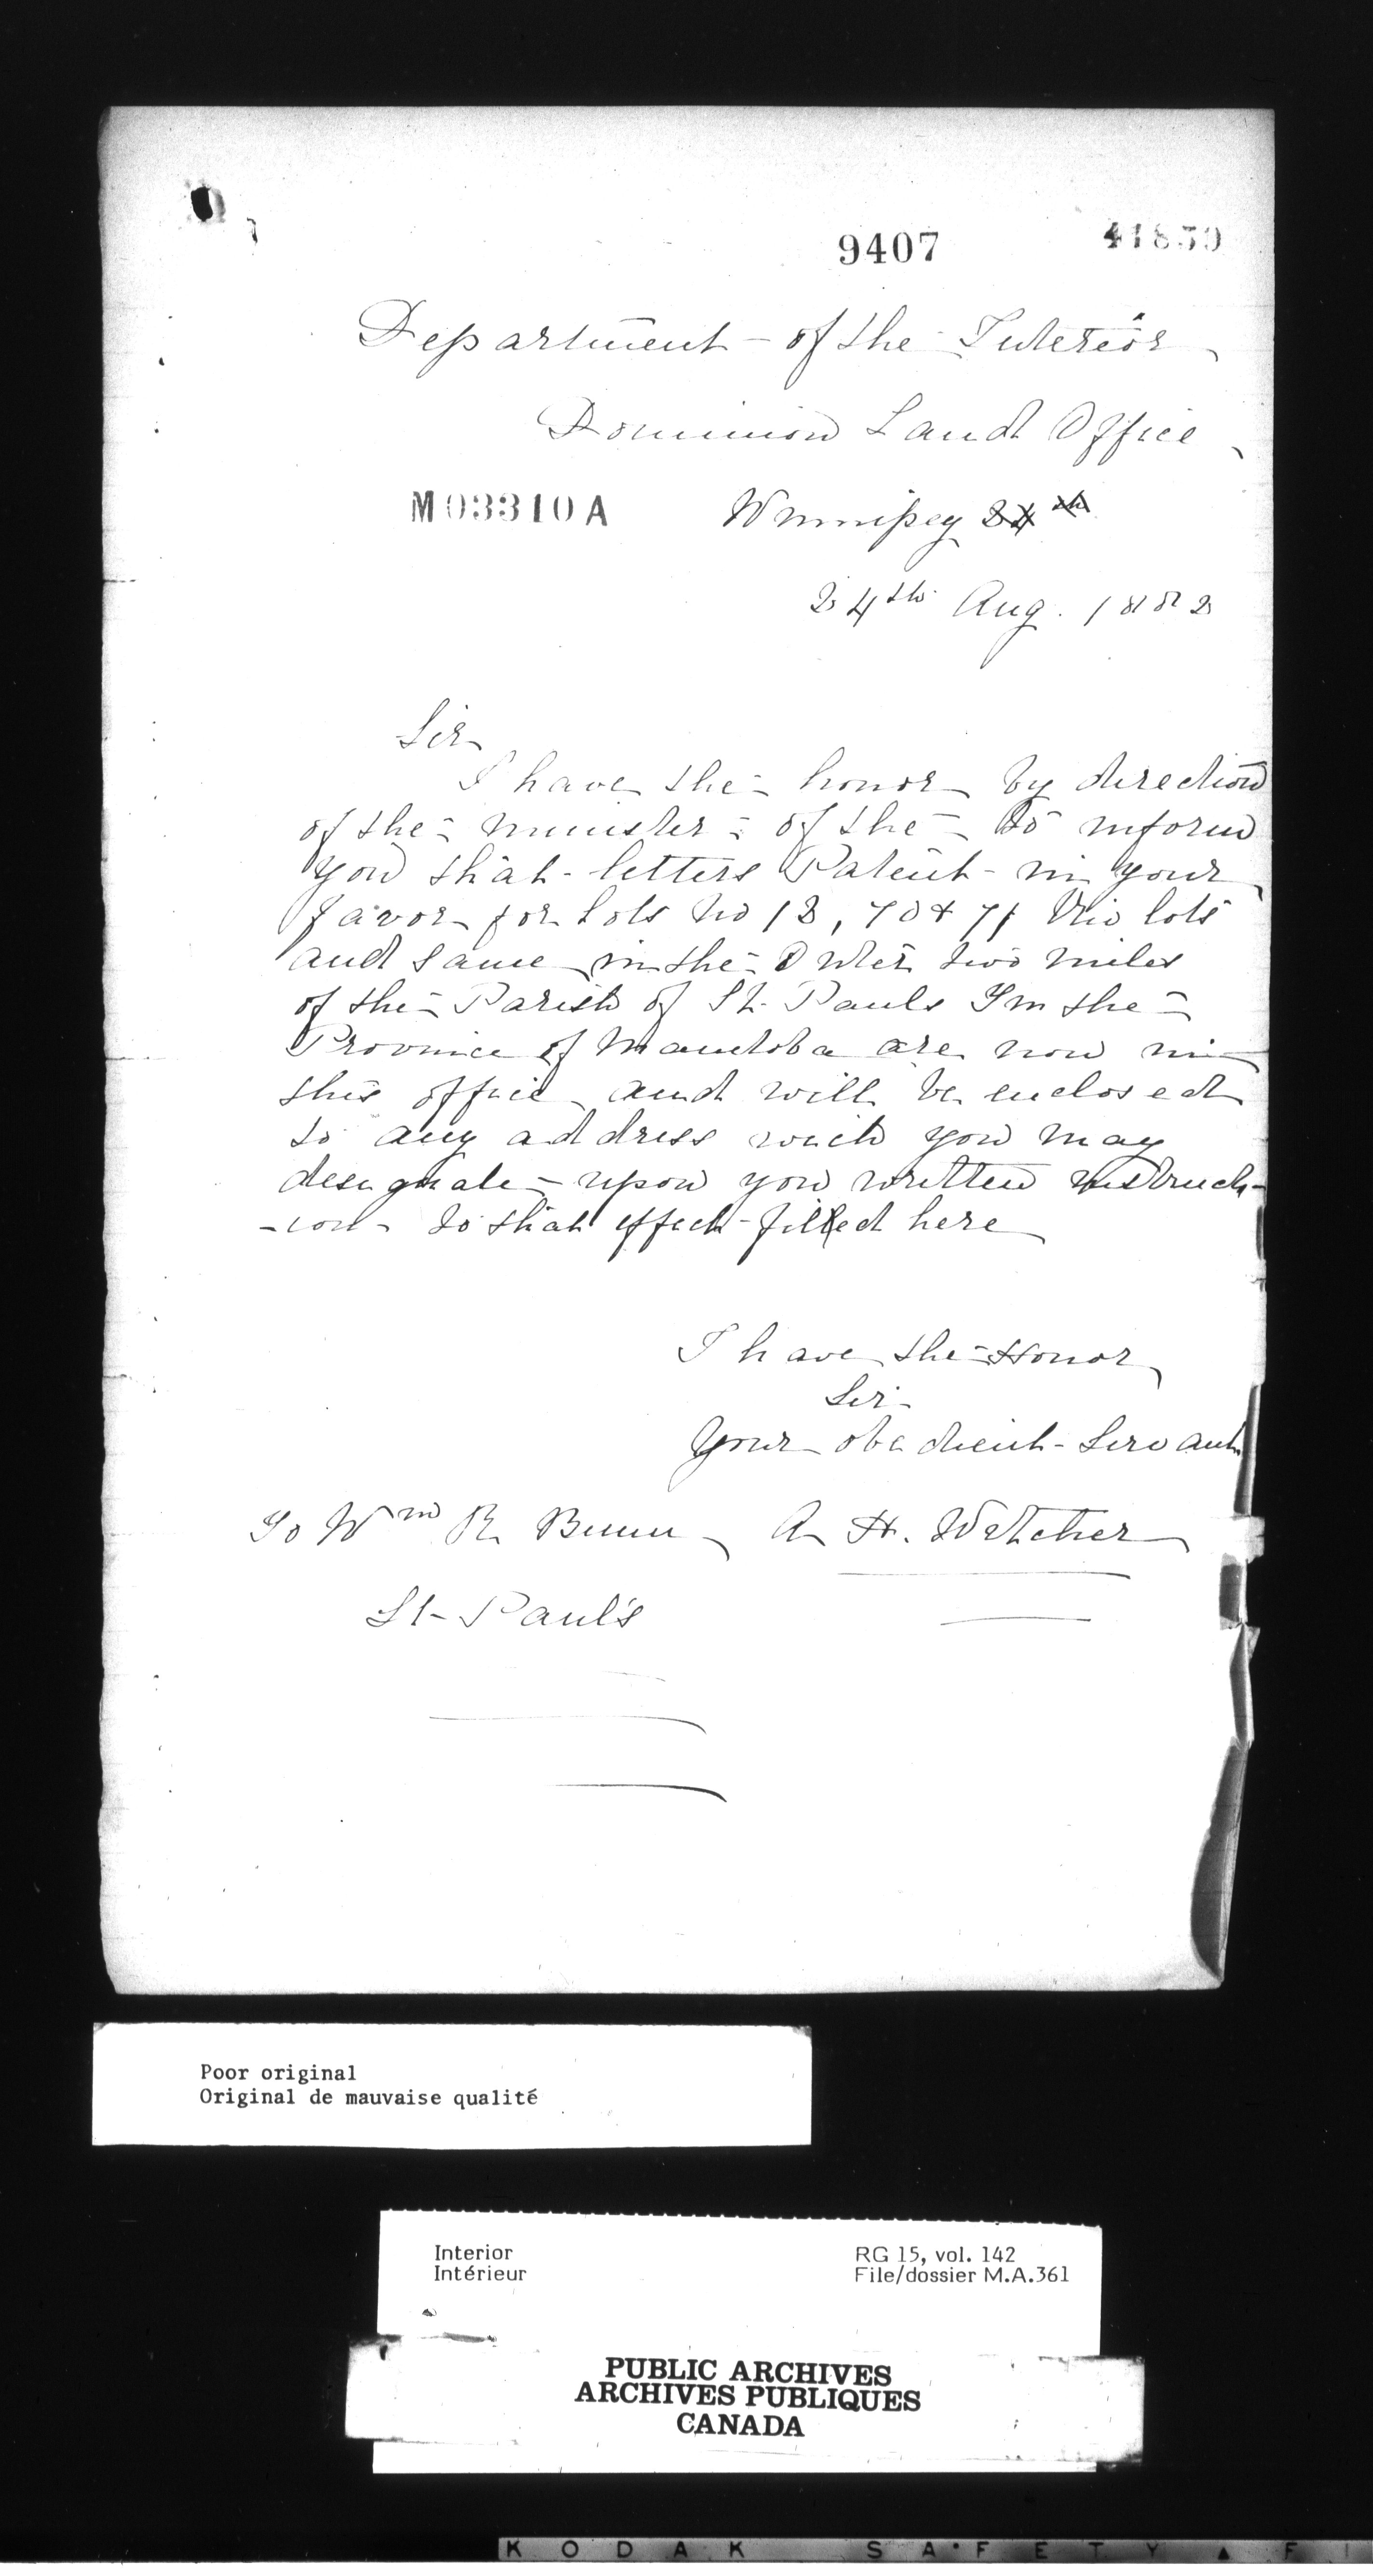 9407 41850
Department - of the Interior
Dominion Land Office
M03310A Winnipeg 24th
24th Aug. 1882
Sir
I have the - honor by direction
of the - minister - of the - to inform
you that - letters Patent - in your
favor for Lots No 13, 70 & 71 lots
and same in the - Outer two miles
of the - Parish of St. Pauls In the -
Province of Manitoba are now in
this office and will be enclosed
to any address wich you may
designate - upon you written instruct-
-ion - to that effect - filled here
I have the - Honor
Sir -
Your obedient - Servant
To Wm R. Bunn A. H. Witcher
St - Paul's
Poor original
Original de mauvaise qualité
Interior RG 15, vol. 142
Intérieur File/dossier M.A.361
PUBLIC ARCHIVES
ARCHIVES PUBLIQUES
CANADA
KODAK SAFETY ▲ F